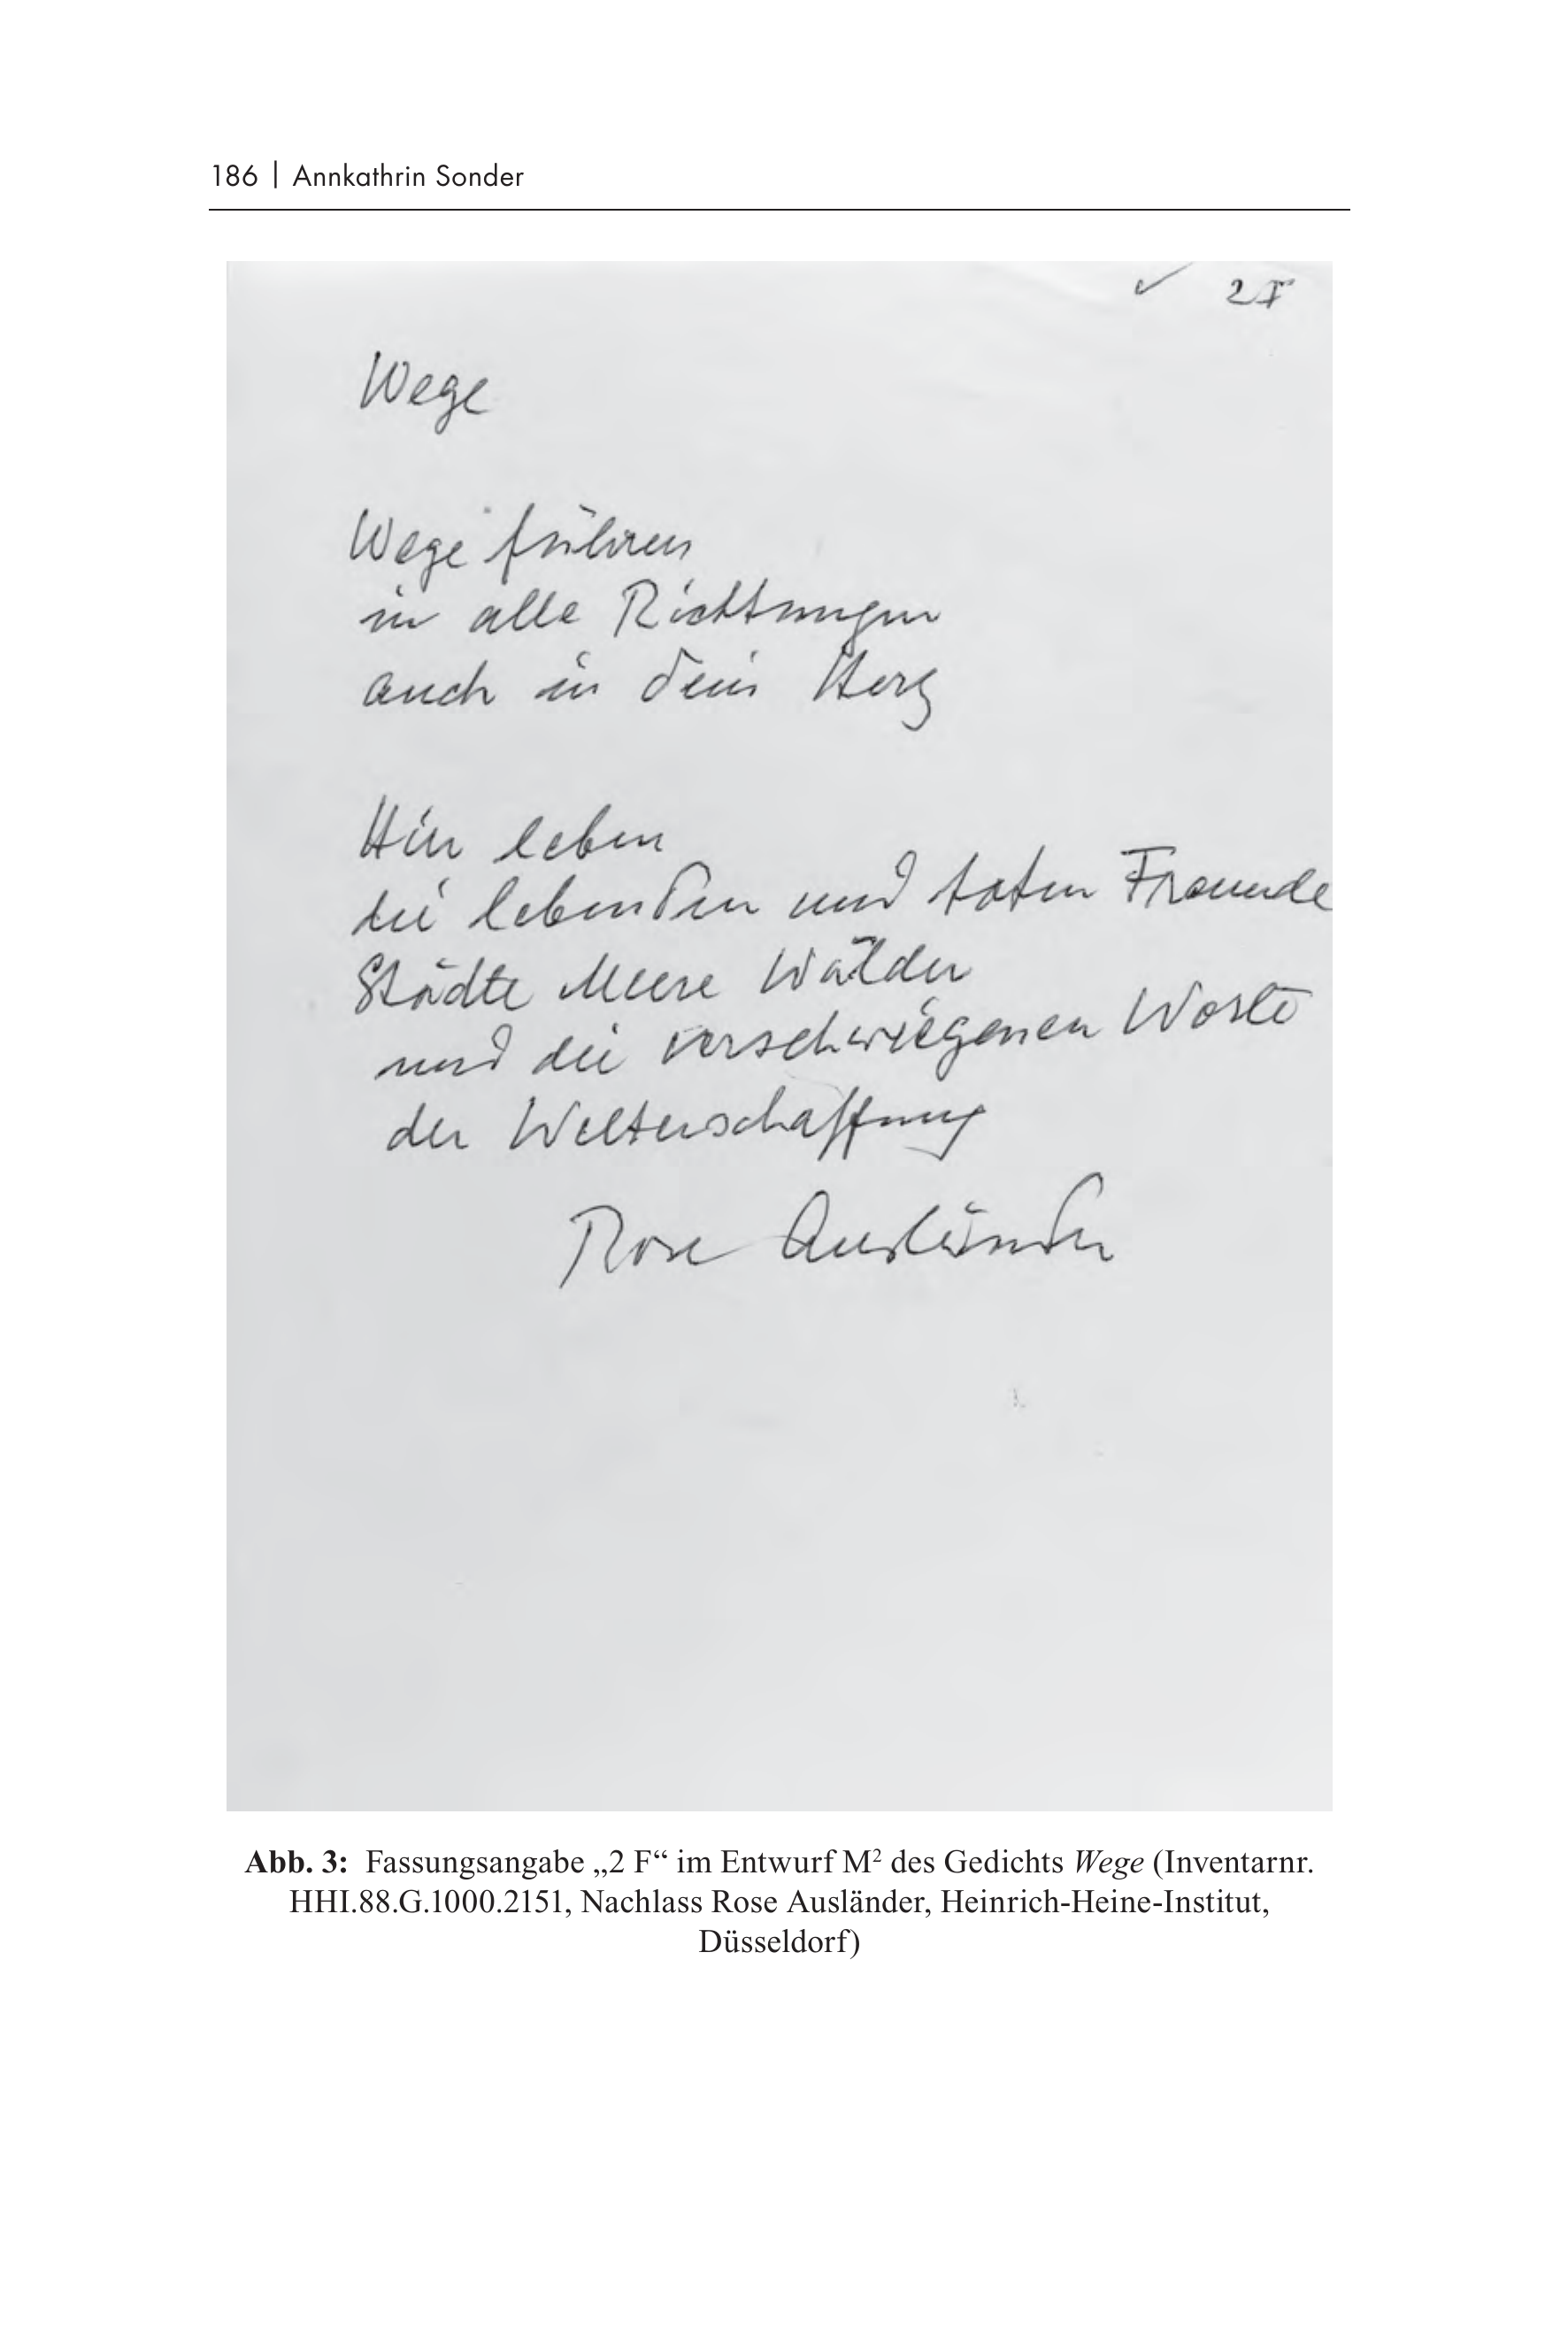 186 | Annkathrin Sonder
✓ 2 F
Wege
Wege führen
in alle Richtungen
auch in dein Herz
Hier leben
die lebenden und toten Freunde
Städte Meere Wälder
und die verschwiegenen Worte
der Welterschaffung
Rose Ausländer
Abb. 3: Fassungsangabe „2 F“ im Entwurf M² des Gedichts Wege (Inventarnr.
HHI.88.G.1000.2151, Nachlass Rose Ausländer, Heinrich-Heine-Institut,
Düsseldorf)